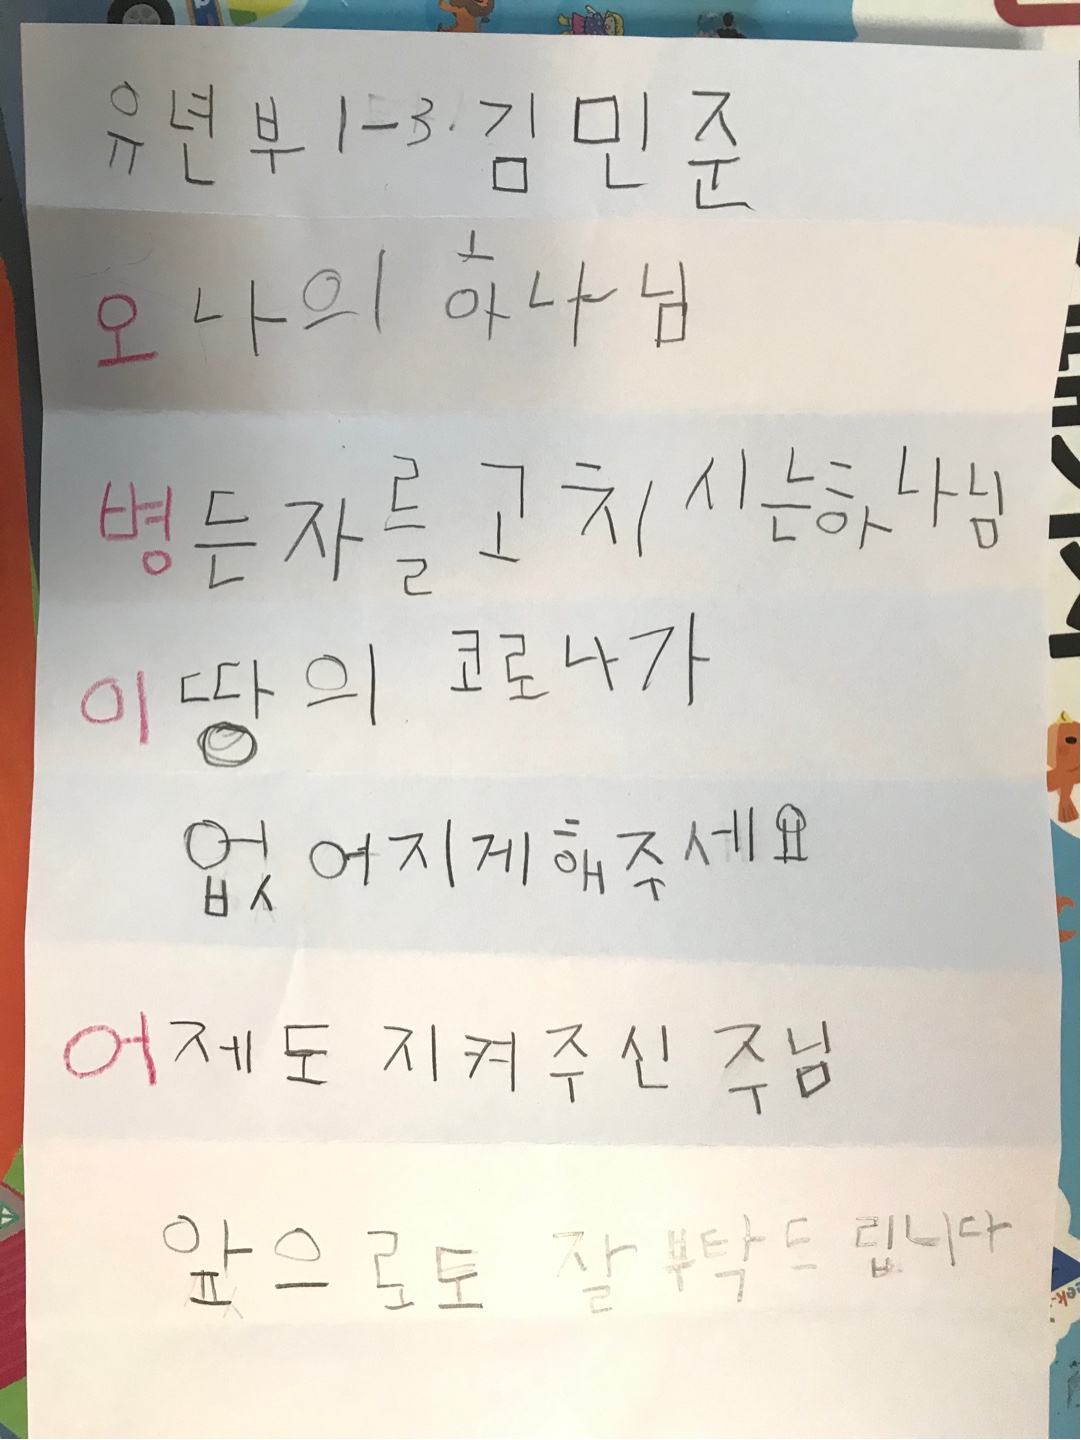 유년부 1-3. 김민준
오 나의 하나님
병든자를 고치시는하나님
이 땅의 코로나가
없어지게해주세요
어제도 지켜주신 주님
앞으로도 잘 부탁드립니다